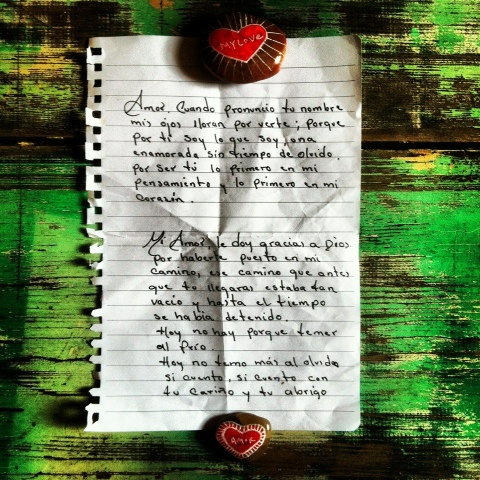 MY LOVE
Amor Cuando pronuncio tu nombre
mis ojos lloran por verte; porque
por ti soy lo que soy, una
enamorada sin tiempo de olvido.
por ser tú lo primero en mi
pensamiento y lo primero en mi
corazón.
Mi Amor, le doy gracias a Dios
por haberte puesto en mi
camino, ese camino que antes
que tu llegaras estaba tan
vacío y hasta el tiempo
se había detenido.
Hoy no hay porque temer
al Pero.
Hoy no temo más al olvido
si cuento, si cuento con
tu cariño y tu abrigo
AMOR